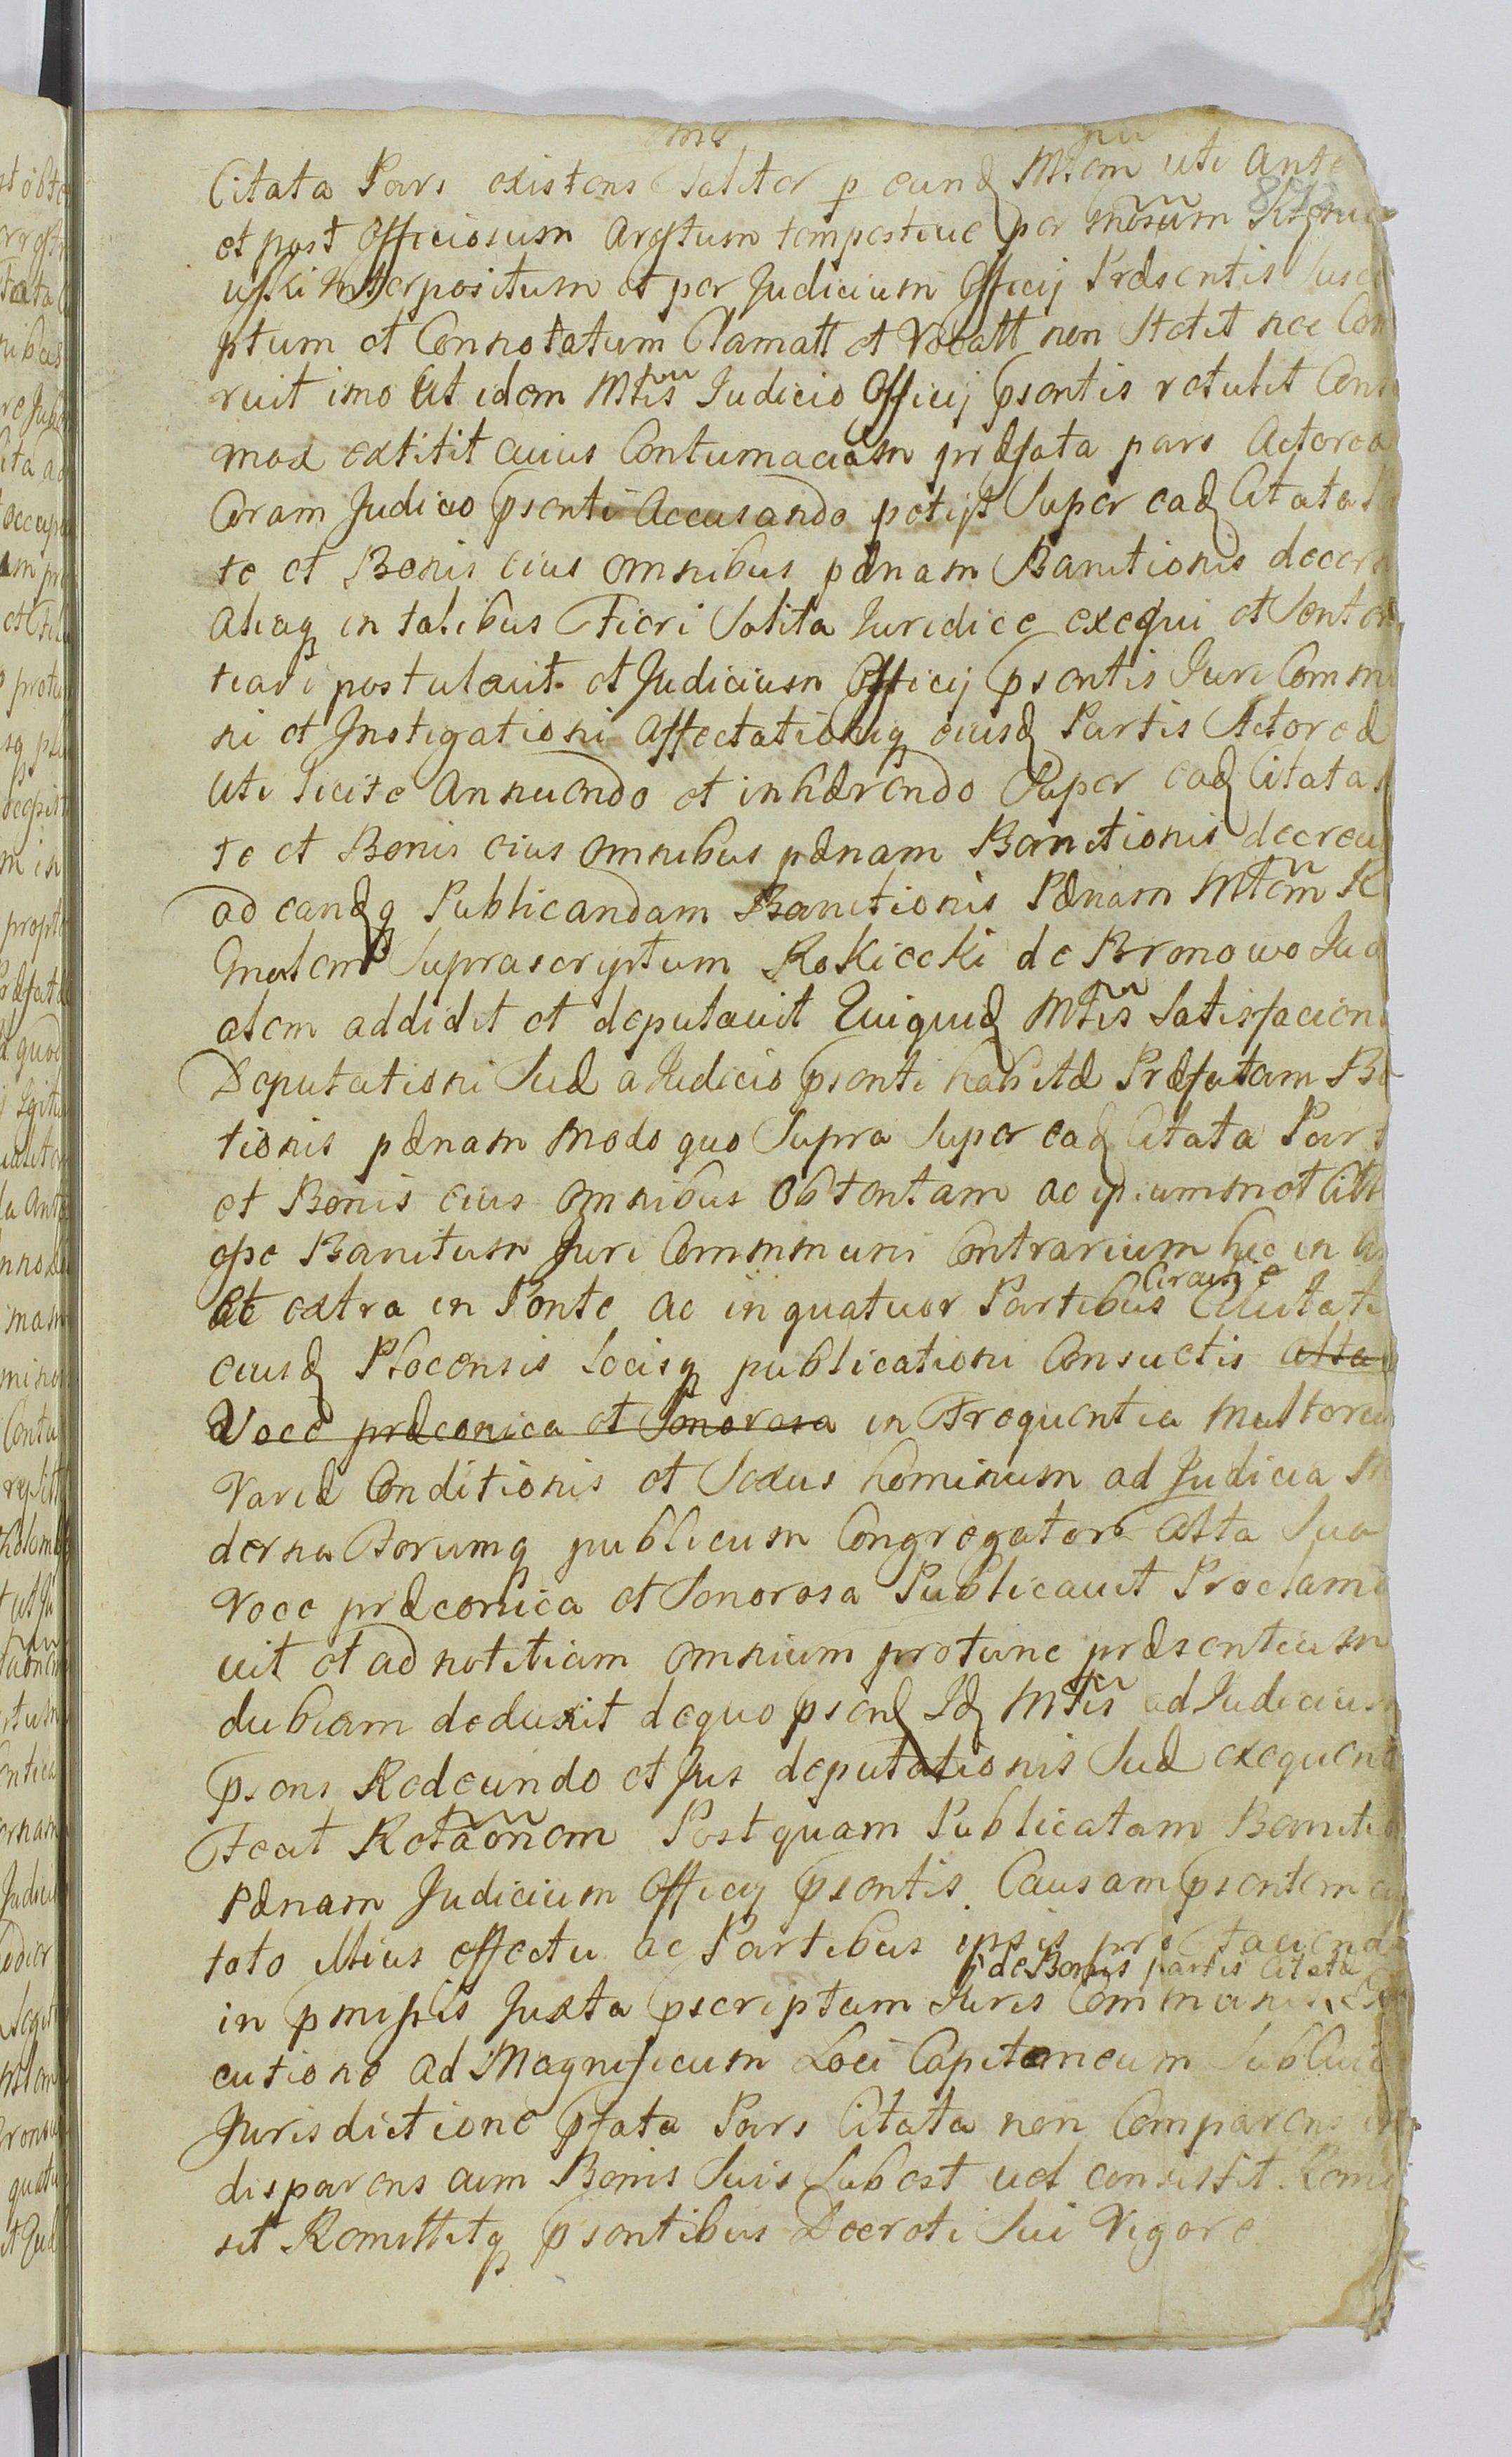 Citata Pars existens taliter p eundꝫ Mtem uti ante
et post Officiosum Arestum tempestiue per Gnosum
Interpositum et per Judicium Officij Præsentis Susce
ptum et Connotatum Clamatt et Vocatt non Stetit nec Con
ruit imo ut idem Mtis Judicio Officij Psentis retulit Contu
max extitit cuius Contumaciam præfata pars Actorea
Coram Judicio Psenti Accusando petijt Super eadꝫ Citata Pa
te et Bonis eius omnibus pænam Banitionis decern
aliaqꝫ in talibus Fieri Solita Juridice exequi et Senten
tiari postulauit et Judicium Officij Psentis Juri Commu
ni et Instigationi Affectationiqꝫ eiusdꝫ Partis Actoreæ
uti licite Annuendo et inhærendo Super eadꝫ Citata
te et Bonis eius omnibus pænam Banitionis decreu
ad eandꝫqꝫ Publicandam Banitionis Pænam Mtem R
Gnalem Suprascriptum Rokicki de Bromowo Jud
alem addidit et deputauit Quiquidꝫ Mtis Satisfaciend
Deputationi Suæ a Judicio Psenti habitæ Præfatam Ba
tionis pænam modo quo Supra Super eadꝫ Citata Part
et Bonis eius omnibus Obtentam ac ipsummet Citt
qpe Banitum Juri Commmuni Contrarium hic in
et extra in Ponte ac in quatuor Partibus Circum Ciuitati
eiusdꝫ Plocensis locisqꝫ publicationi Consuetis alta
Voce præconica et Sonorosa in Frequentia multoru
Variæ Conditionis et Sexus hominum ad Judicia M
derna Forumqꝫ publicum Congregator Alta Sua
Voce præconica et Sonorosa Publicauit Proclama
uit et ad notitiam omnium protunc præsentium
dubiam deduxit dequo psendꝫ Idꝫ Mtis ad Judicium
Psens Redeundo et Jus deputationis Suæ exequend
Fecit Retaonem Postquam Publicatam Baniti
Pænam Judicium Officij Psentis Causam Psentem cu
toto illius effectu ac Partibus ipsis pro Facienda
de Bonis partis Citatæ
in Pmissis Juxta Pscriptum Juris Communis Ex
cutione ad Magnificum Loci Capitaneum Sub Cuius
Jurisdictione Pfata Pars Citata non Comparens
disparens cum Bonis Suis Subest uel consistit Remi
sit Remittitqꝫ Psentibus Decreti Sui Vigore